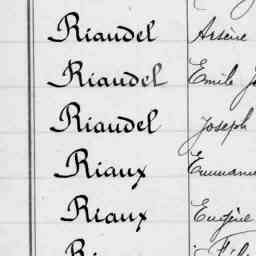 Riaudel Arsène
Riaudel Emile
Riaudel Joseph
Riaux
Riaux Eugène